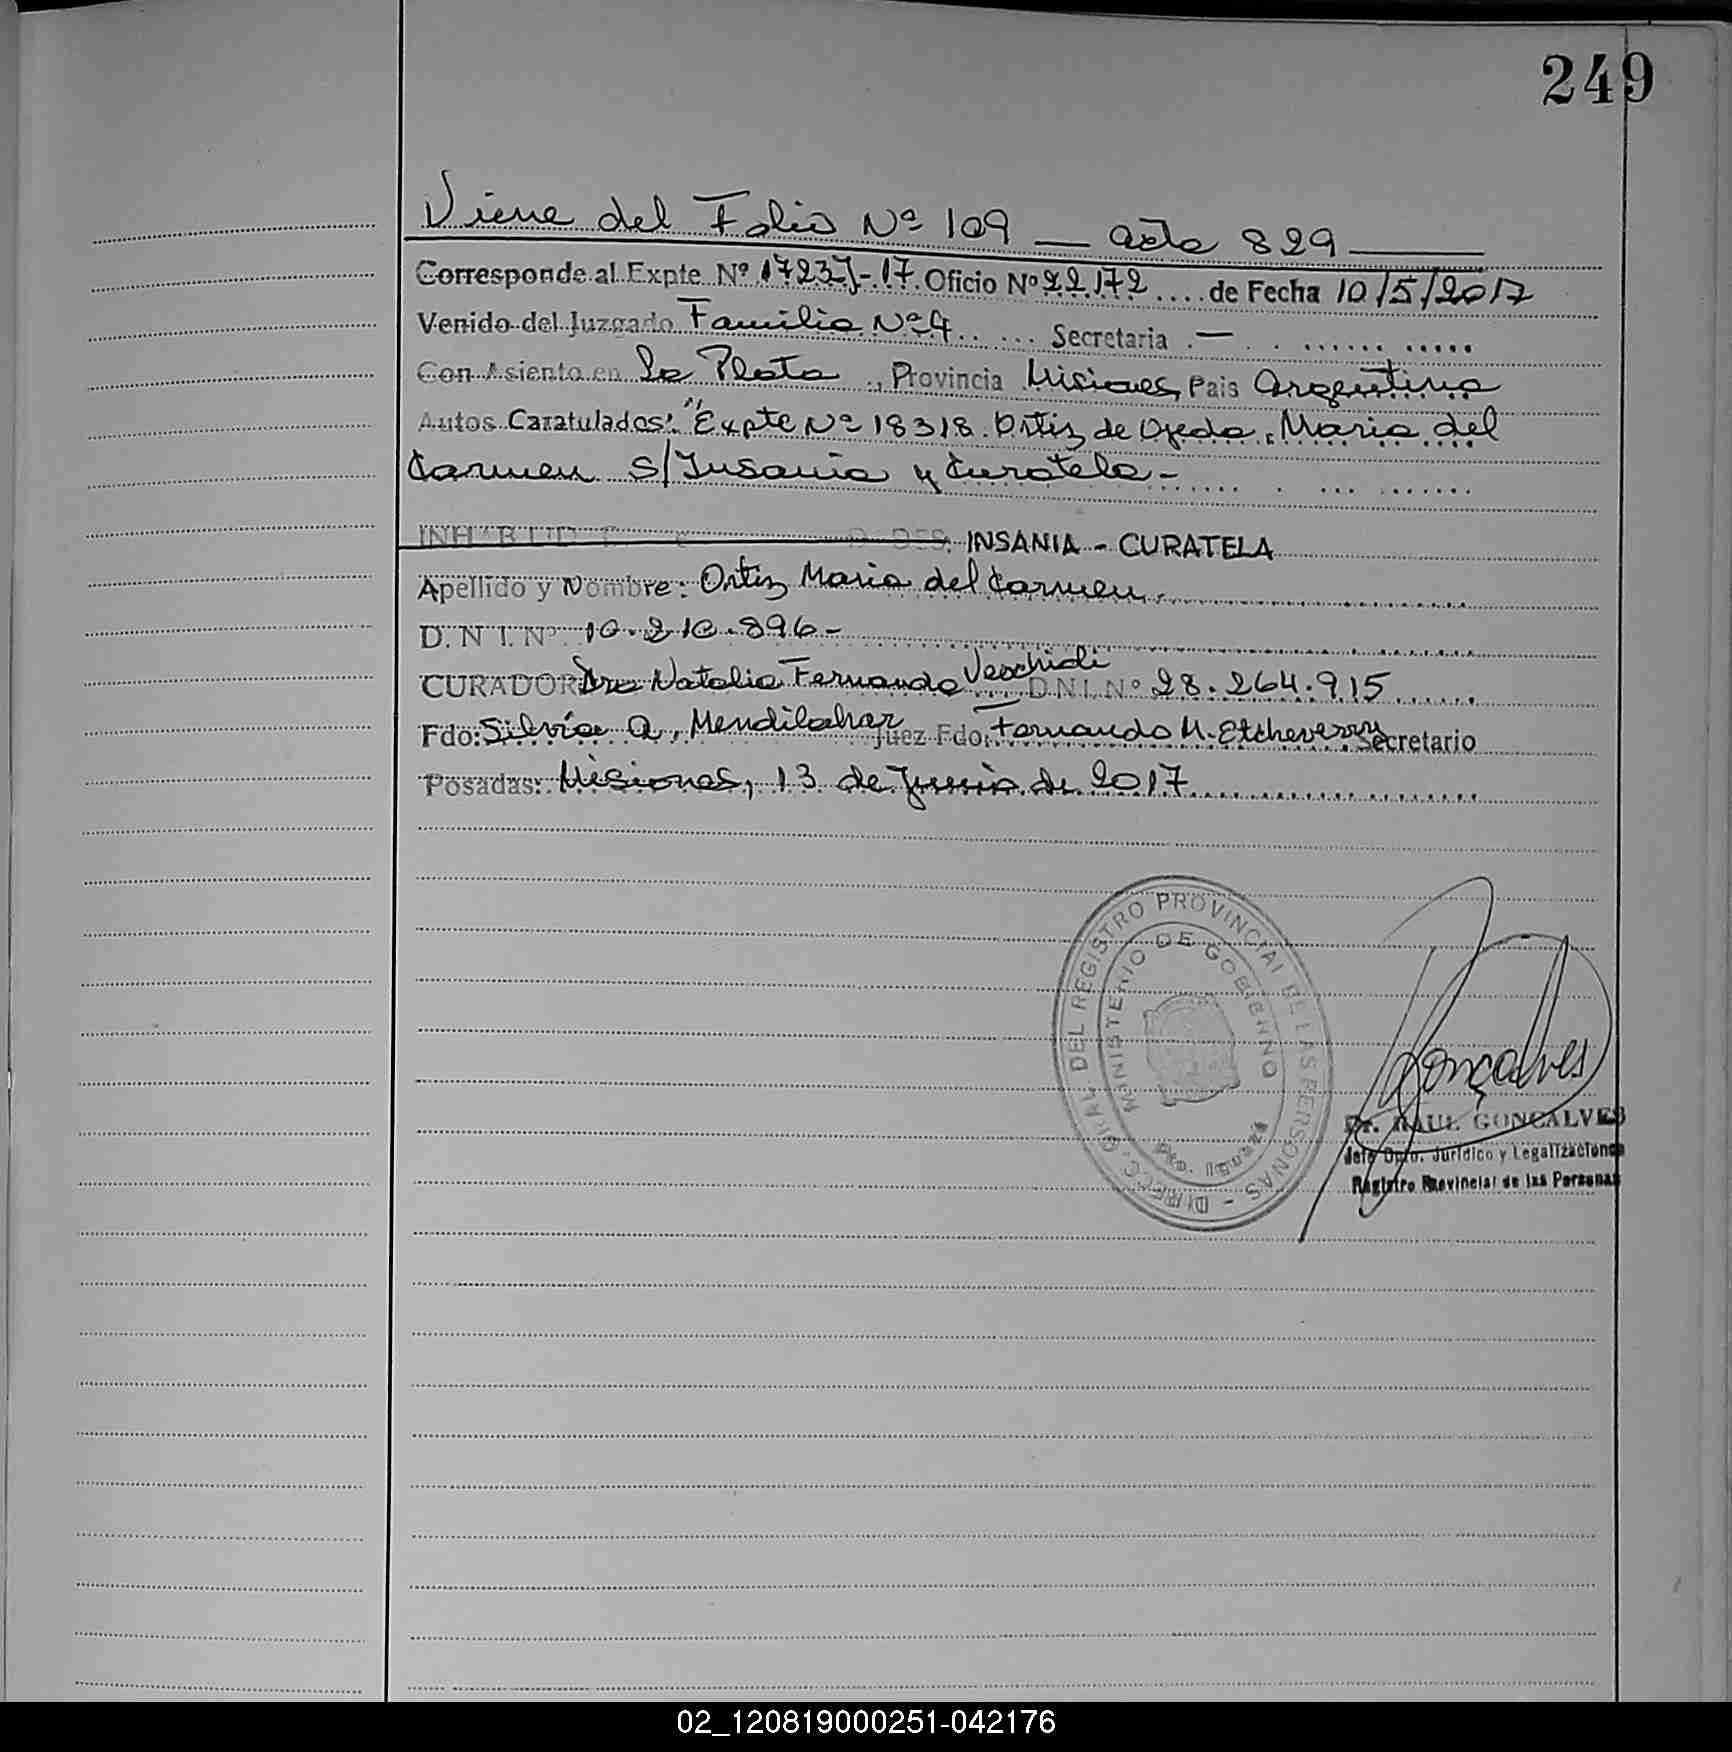 249
Viene del Folio Nº 109 — acta 829 —
Corresponde al Expte. Nº 17237-17 Oficio Nº 22.172 .... de Fecha 10/5/2017
Venido del Juzgado Familia Nº 4 ..... Secretaria . — . . ...... .....
Con Asiento en La Plata ., Provincia Misiones, Pais Argentina
Autos Caratulados: "Expte Nº 18318. Ortiz de Ojeda, Maria del
Carmen s/Insania y Curatela -
INSANIA - CURATELA
Apellido y Nombre: Ortiz Maria del Carmen.
D.N.I. Nº 10.210.896-
CURADOR: Dra Natalia Fernanda D.N.I. Nº 28.264.915
Fdo: Silvia A. Mendilahar Juez Fdo: Fernando M. Etcheverry Secretario
Posadas: Misiones, 13 de Junio de 2017
DIRECC. GRAL. DEL REGISTRO PROVINCIAL DE LAS PERSONAS -
MINISTERIO DE GOBIERNO
Pto. Iguazú
Gonçalves
Dr. RAUL GONCALVES
Jefe Dpto. Jurídico y Legalizaciones
Registro Provincial de las Personas
02_120819000251-042176